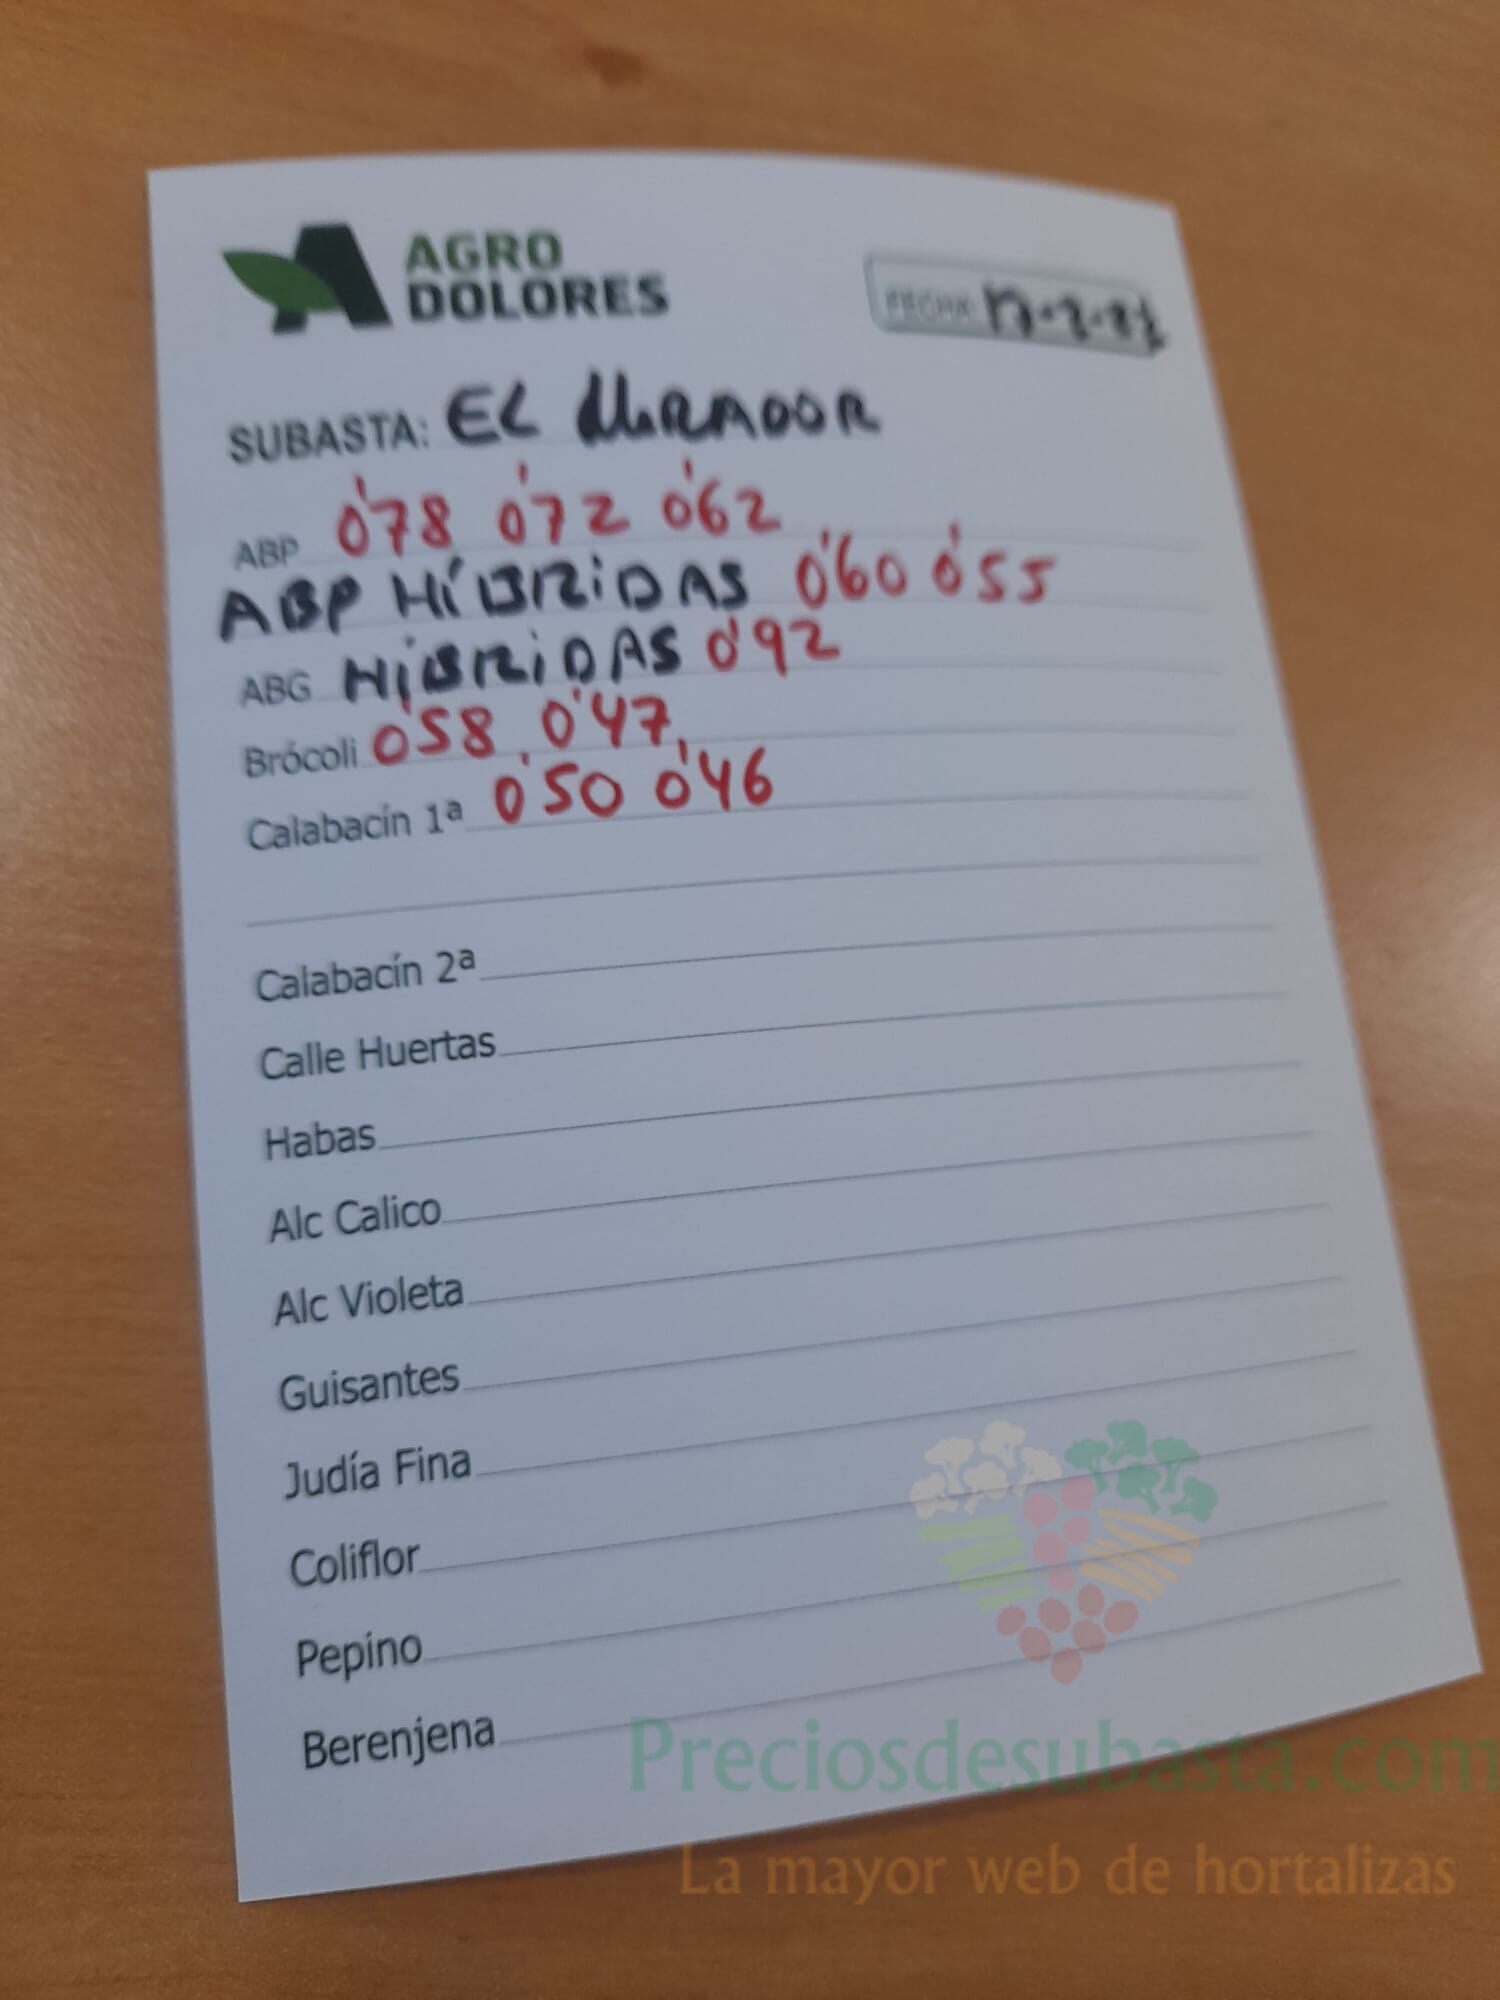 AGRO
DOLORES
FECHA:
SUBASTA: EL MIRADOR
ABP 0'78 0'72 0'62
ABP HÍBRIDAS 0'60 0'55
ABG HÍBRIDAS 0'92
Brócoli 0'58 0'47
Calabacín 1ª 0'50 0'46
Calabacín 2ª
Calle Huertas
Habas
Alc Calico
Alc Violeta
Guisantes
Judía Fina
Coliflor
Pepino
Berenjena
Preciosdesubasta.com
La mayor web de hortalizas